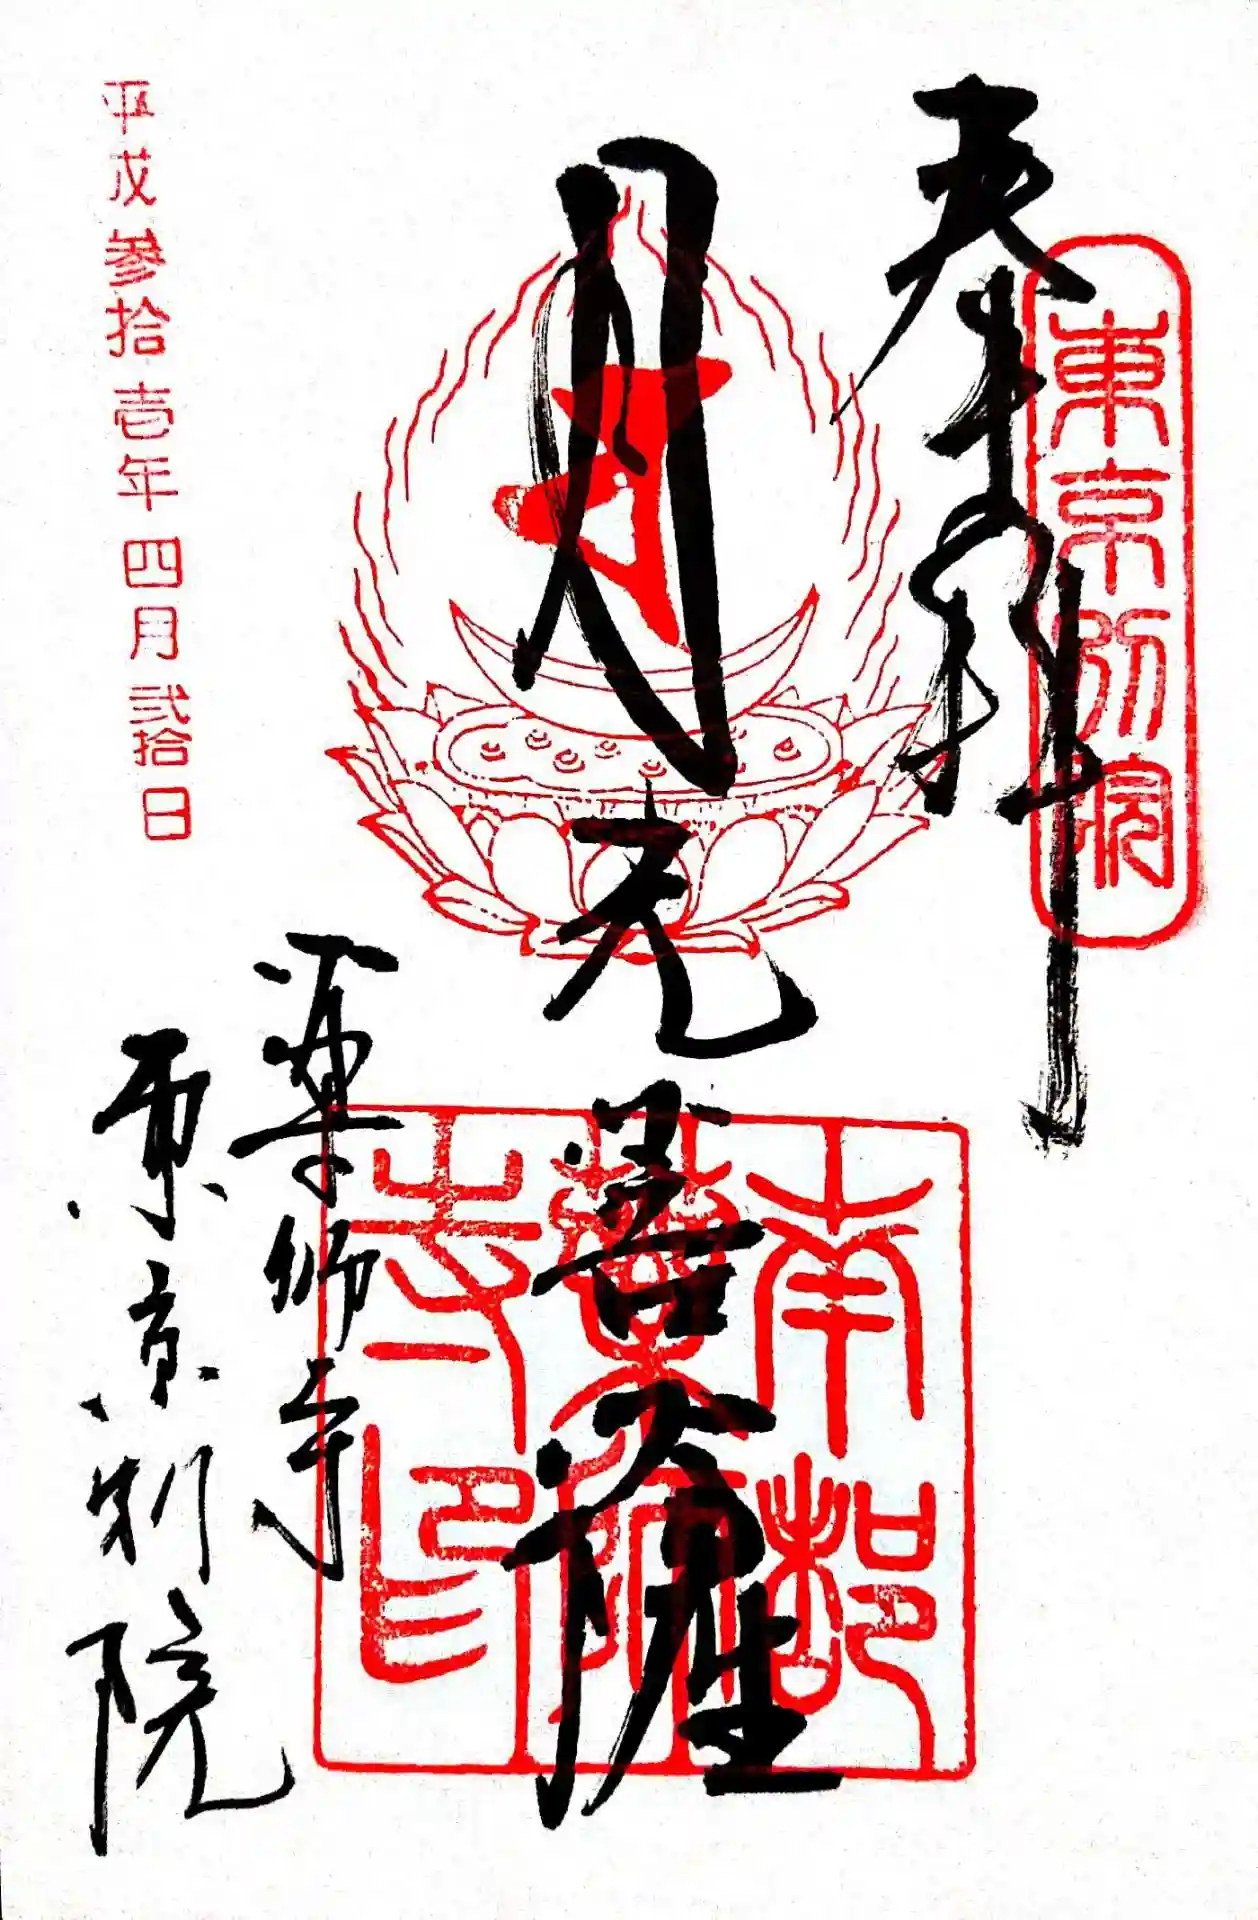 奉拝
東京別院
月光菩薩
南都
薬師
寺印
平成参拾壱年四月弐拾日
薬師寺
東京別院